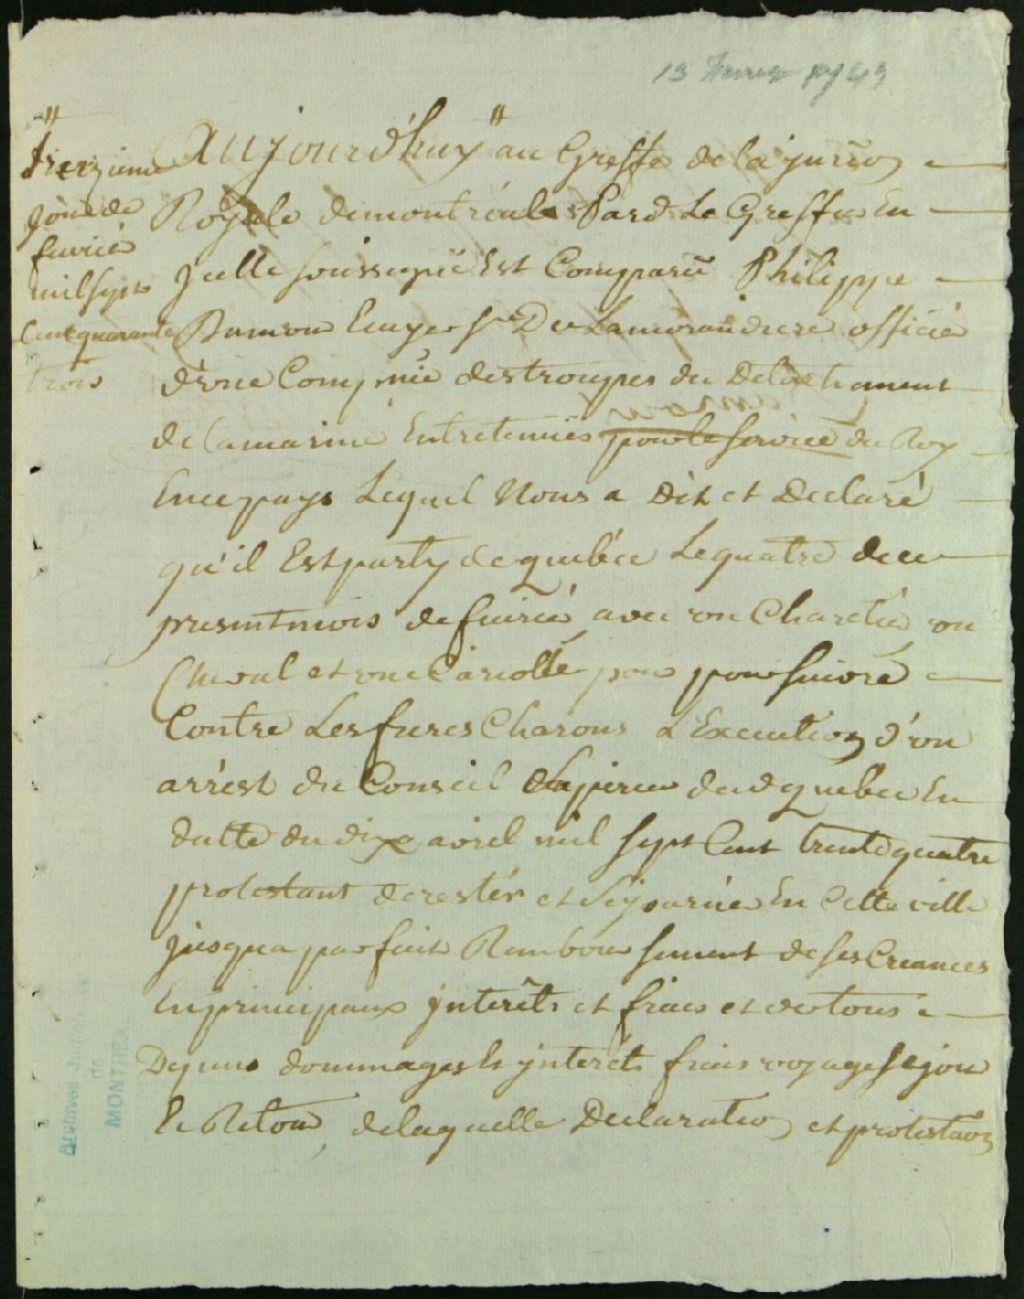 13 fevrier 1743
"
treizieme
jour de
fevrier
mil sept
Cent quarante
trois
Aujourd'huy " au Greffe de la juron
Royale de montréal Pard. Le Greffier En
Jcelle soussigné Est Comparu Philippe
Damour Ecuyer Sr De Lamorandiere officié
d'vne Compnié des troupes du Detachement
de la marine Entretenües pour le service du Roy
En ce pays Lequel Nous a Dit et Declaré
qu'il Est party de quebec Le quatre de ce
present mois de fevrié avec vn Charetié vn
Cheval et vne Cariolle pour poursuivre
Contre Les freres Charons L'Execution d'vn
arrest du Conseil Superieur de quebec En
datte du dix avril mil sept Cent trente quatre
protestant de rester et Sejourner En Cette ville
jusqua parfait Rembourssement de ses Creances
En principaux jnterêts et frais et de tous
Depens dommages & jnterêts frais voyage sejour
& Retour, de laquelle Declaration et protestaon
Archives Judiciaires
de
MONTREAL